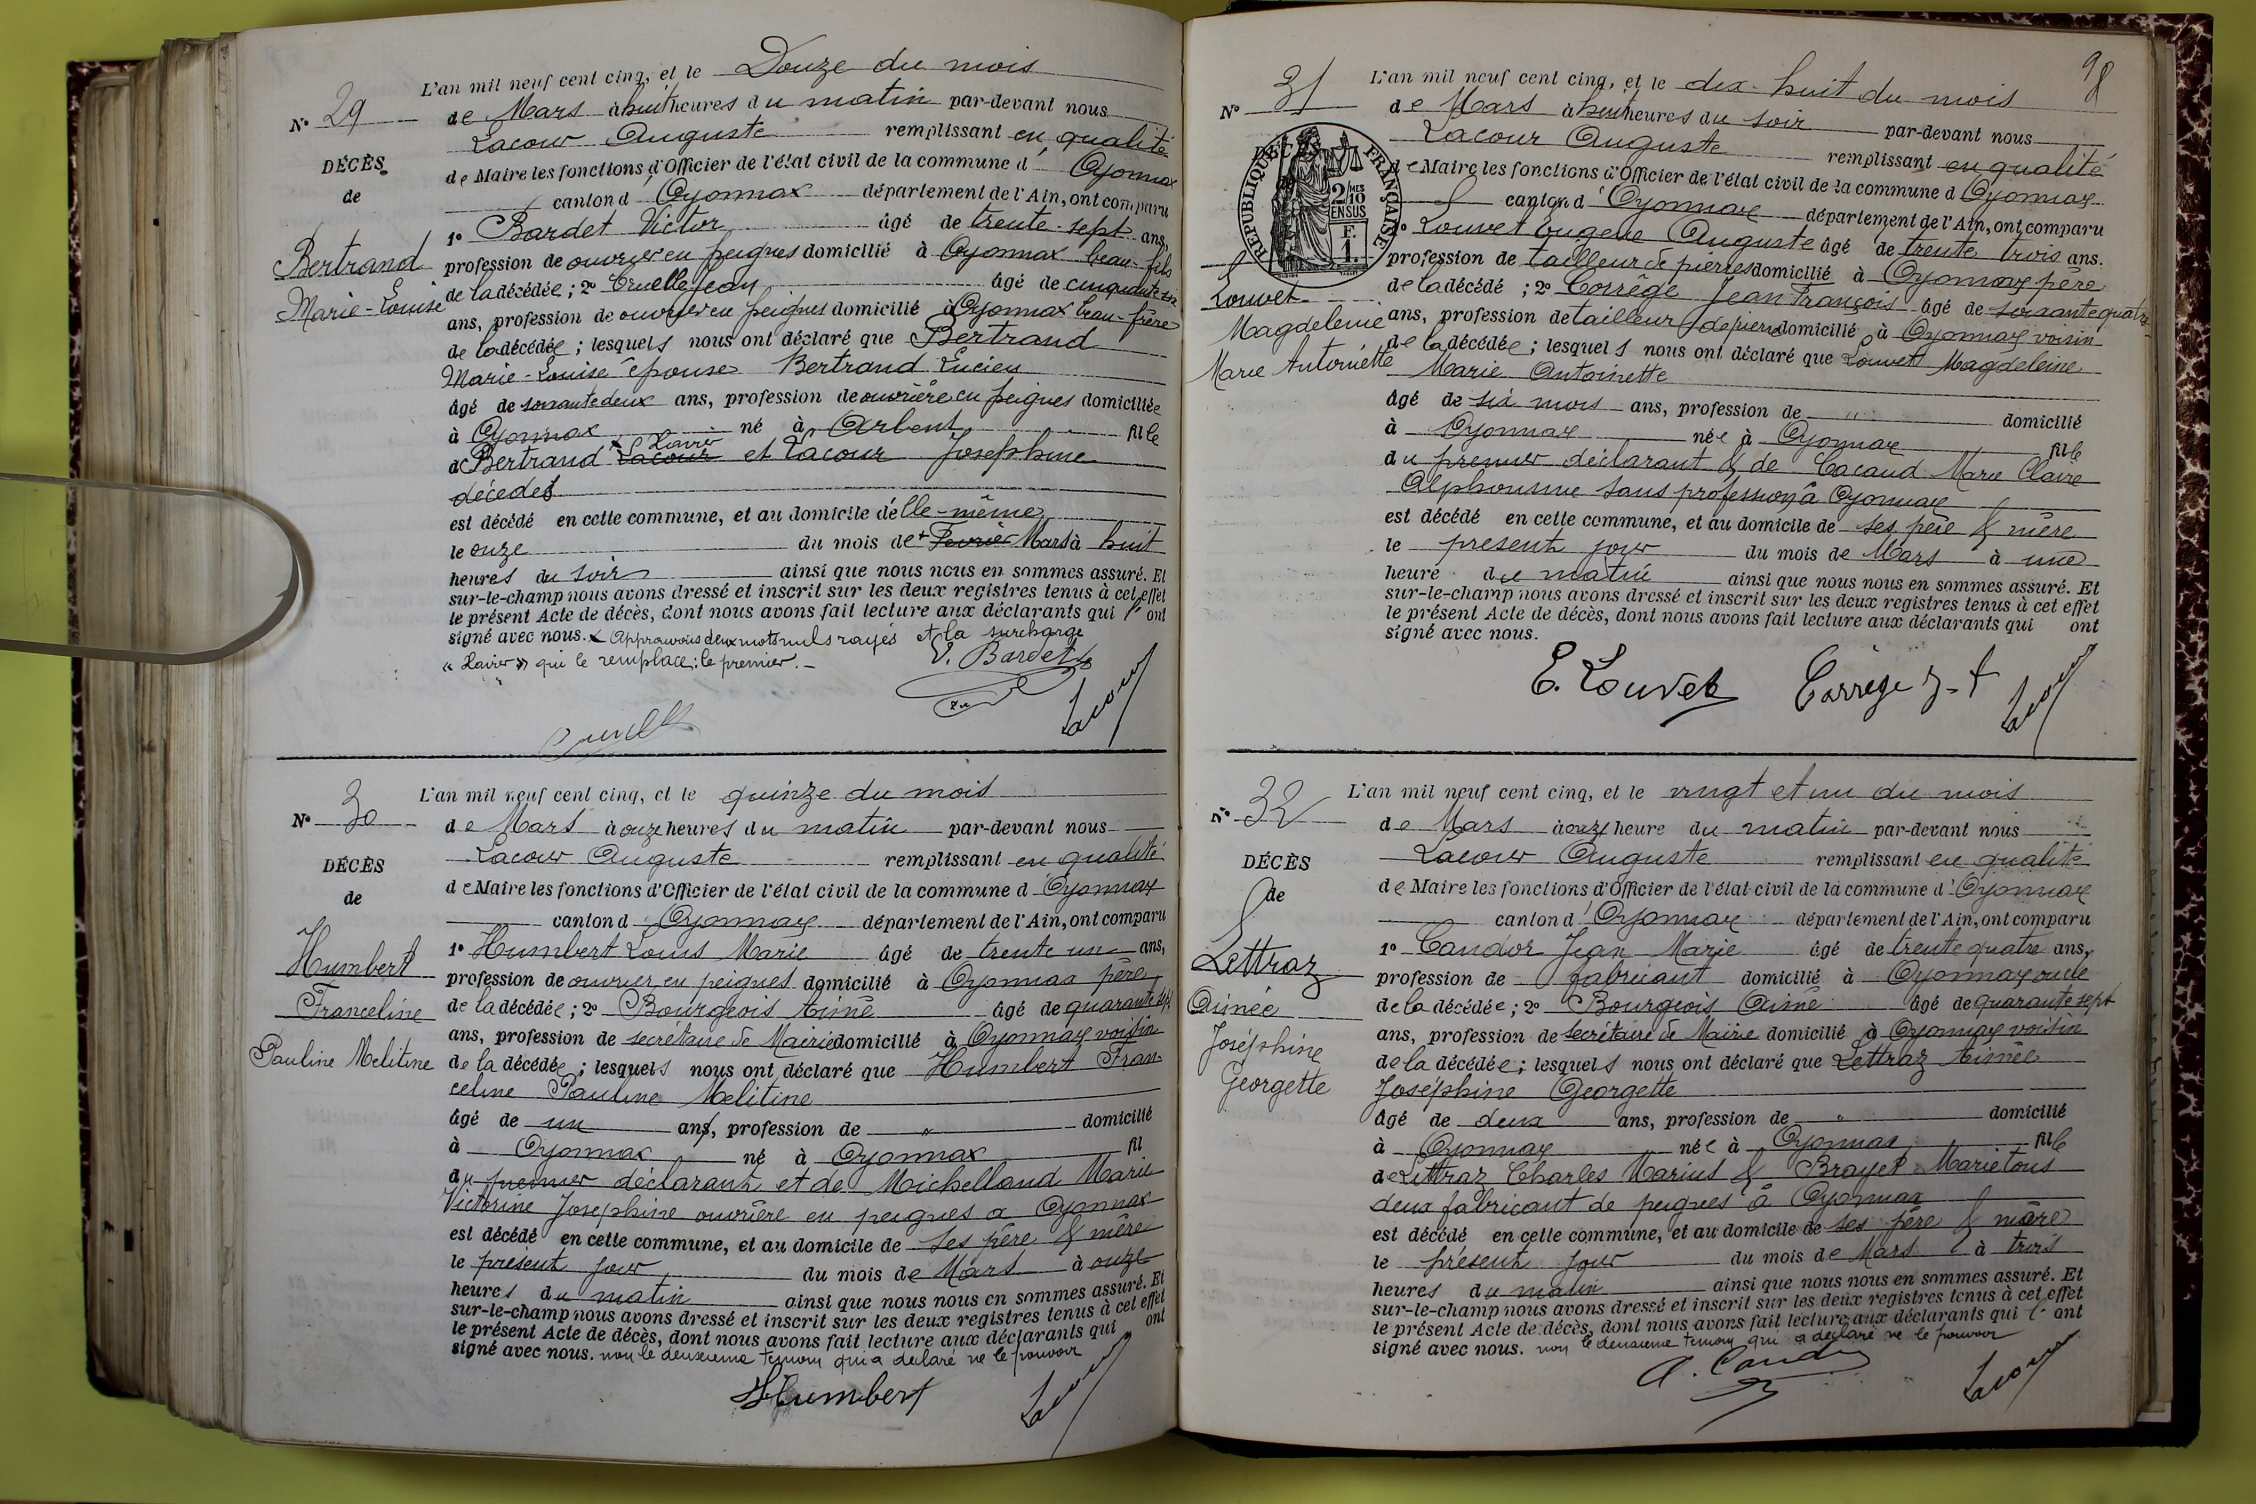 L'an mil neuf cent cinq, et le Douze du mois
N° 29
de Mars à huit heures du matin par-devant nous
Lacour Auguste remplissant en qualité
DÉCÈS
de Maire les fonctions d'Officier de l'état civil de la commune d' Oyonnax
de
canton d' Oyonnax département de l'Ain, ont comparu
1° Bardet Victor âgé de trente-sept ans,
Bertrand
profession de ouvrier en peignes domicilié à Oyonnax beau-fils
Marie-Louise
de la décédée ; 2° Cruelle Jean âgé de cinquante six
ans, profession de ouvrier en peignes domicilié à Oyonnax beau-frère
de la décédée ; lesquels nous ont déclaré que Bertrand
Marie-Louise épouse Bertrand Lucien
âgé de soixante deux ans, profession de ouvrière en peignes domiciliée
à Oyonnax né à Arbent fille
x Xavier
de Bertrand Lacour et Lacour Joséphine
décédés
est décédé en cette commune, et au domicile d'elle-même
le onze du mois de Fevrier Mars à huit
heures du soir ainsi que nous nous en sommes assuré. Et
sur-le-champ nous avons dressé et inscrit sur les deux registres tenus à cet effet
le présent Acte de décès, dont nous avons fait lecture aux déclarants qui l' ont
signé avec nous. x Approuvons deux mots nuls rayés et la surcharge
« Xavier » qui le remplace ; le premier. –
V. Bardet
Cruelle
Lacour
L'an mil neuf cent cinq, et le quinze du mois
N° 30
de Mars à onze heures du matin par-devant nous
Lacour Auguste remplissant en qualité
DÉCÈS
de Maire les fonctions d'Officier de l'état civil de la commune d' Oyonnax
de
canton d' Oyonnax département de l'Ain, ont comparu
1° Humbert Louis Marie âgé de trente un ans,
Humbert
profession de ouvrier en peignes domicilié à Oyonnax père
Franceline
de la décédée ; 2° Bourgeois Aimé âgé de quarante sept
ans, profession de secrétaire de Mairie domicilié à Oyonnax voisin
Pauline Melitine
de la décédée ; lesquels nous ont déclaré que Humbert Fran
celine Pauline Melitine
âgé de un ans, profession de " domicilié
à Oyonnax né à Oyonnax fil
du premier déclarant et de Michelland Marie
Victorine Josephine ouvrière en peignes à Oyonnax
est décédé en cette commune, et au domicile de ses père & mère
le présent jour du mois de Mars à onze
heures du matin ainsi que nous nous en sommes assuré. Et
sur-le-champ nous avons dressé et inscrit sur les deux registres tenus à cet effet
le présent Acte de décès, dont nous avons fait lecture aux déclarants qui ont
signé avec nous. non le deuxieme temoin qui a déclaré ne le pouvoir
Humbert
Lacour
98
L'an mil neuf cent cinq, et le dix-huit du mois
N° 31
de Mars à huit heures du soir par-devant nous
Lacour Auguste remplissant en qualité
RÉPUBLIQUE FRANÇAISE
2/10 MES
EN SUS
F.
1.
de Maire les fonctions d'Officier de l'état civil de la commune d Oyonnax
canton d' Oyonnax département de l'Ain, ont comparu
1° Louvet Eugene Auguste âgé de trente trois ans.
profession de tailleur de pierres domicilié à Oyonnax père
Louvet
de la décédé ; 2° Corrège Jean François âgé de soixante quatre
Magdeleine
ans, profession de tailleur de pierre domicilié à Oyonnax voisin
Marie Antoinette
de la décédée ; lesquels nous ont déclaré que Louvet Magdeleine
Marie Antoinette
âgé de six mois ans, profession de " domicilié
à Oyonnax née à Oyonnax fille
du premier déclarant & de Cacaud Marie Claire
Alphonsine sans profession à Oyonnax
est décédé en cette commune, et au domicile de ses père & mère
le présent jour du mois de Mars à une
heure du matin ainsi que nous nous en sommes assuré. Et
sur-le-champ nous avons dressé et inscrit sur les deux registres tenus à cet effet
le présent Acte de décès, dont nous avons fait lecture aux déclarants qui ont
signé avec nous.
E. Louvet Corrège J-f
Lacour
L'an mil neuf cent cinq, et le vingt et un du mois
N° 32
de Mars à onze heure du matin par-devant nous
Lacour Auguste remplissant en qualité
DÉCÈS
de Maire les fonctions d'Officier de l'état civil de la commune d' Oyonnax
de
canton d' Oyonnax département de l'Ain, ont comparu
1° Candor Jean Marie âgé de trente quatre ans,
Lettraz
profession de fabricant domicilié à Oyonnax oncle
Aimée
de la décédée ; 2° Bourgeois Aimé âgé de quarante sept
ans, profession de secrétaire de Mairie domicilié à Oyonnax voisin
Joséphine
de la décédée ; lesquels nous ont déclaré que Lettraz Aimée
Georgette
Joséphine Georgette
âgé de deux ans, profession de " domicilié
à Oyonnax née à Oyonnax fille
de Lettraz Charles Marius & Brayet Marie tous
deux fabricant de peignes à Oyonnax
est décédé en cette commune, et au domicile de ses père & mère
le présent jour du mois de Mars à trois
heures du matin ainsi que nous nous en sommes assuré. Et
sur-le-champ nous avons dressé et inscrit sur les deux registres tenus à cet effet
le présent Acte de décès, dont nous avons fait lecture aux déclarants qui l' ont
signé avec nous. non le deuxieme temoin qui a déclaré ne le pouvoir
Lacour